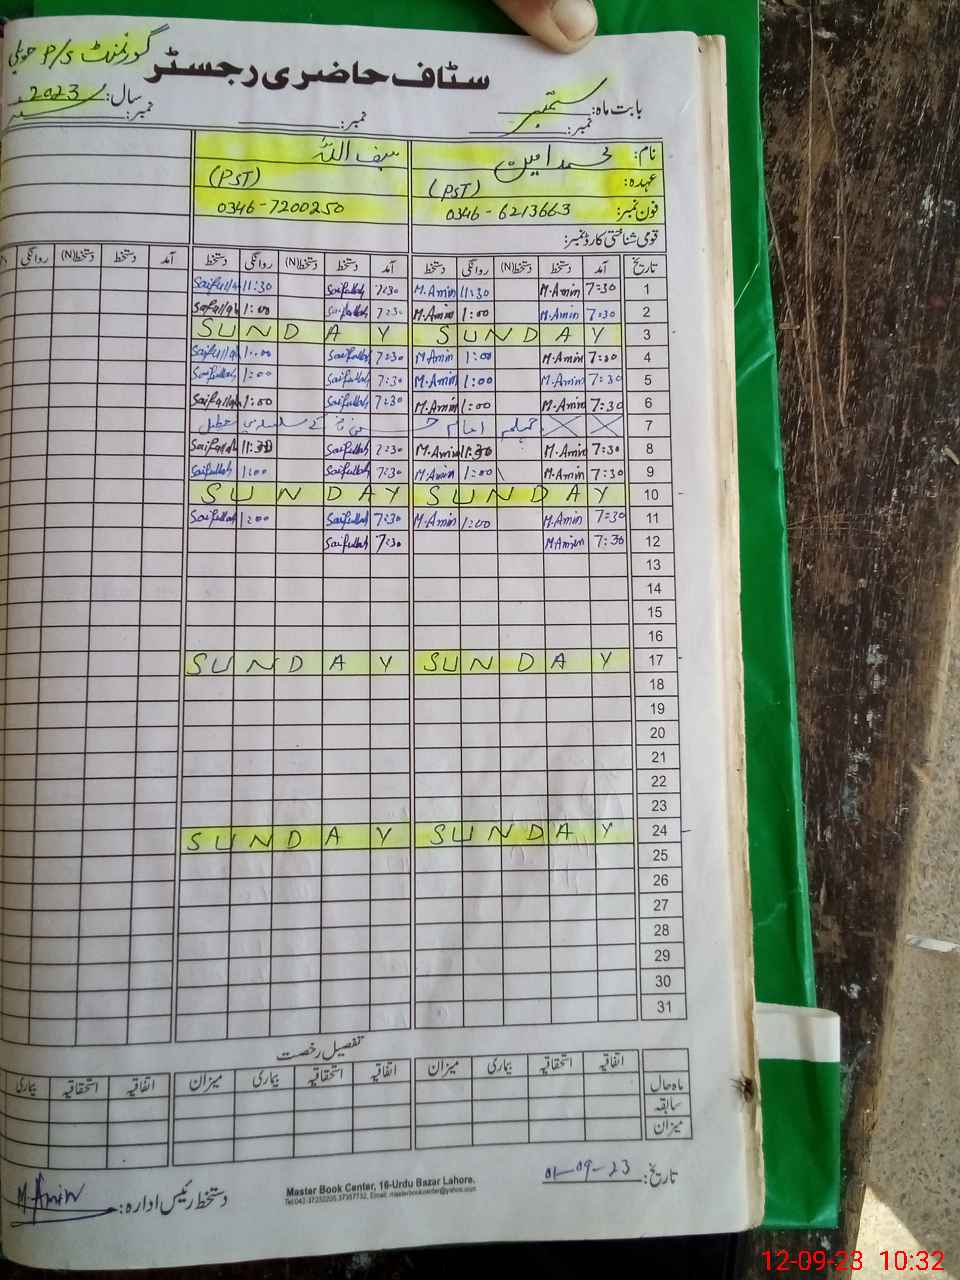 سٹاف حاضری رجسٹر گورنمنٹ P/S حویلی
بابت ماہ: ستمبر سال: 2023
نمبر: نمبر: نمبر:
نام: محمد امین سیف اللہ
عہدہ: (PST) (PST)
فون نمبر: 0346-6213663 0346-7200250
قومی شناختی کارڈ نمبر:
تاریخ آمد دستخط دستخط(N) روانگی دستخط آمد دستخط دستخط(N) روانگی دستخط آمد دستخط دستخط(N) روانگی
1 7:30 M.Amin 11:30 M.Amin 7:30 Saifullah 11:30 Saifullah
2 7:30 M.Amin 1:00 M.Amin 7:30 Saifullah 1:00 Saifullah
3 SUNDAY SUNDAY
4 7:30 M.Amin 1:00 M.Amin 7:30 Saifullah 1:00 Saifullah
5 7:30 M.Amin 1:00 M.Amin 7:30 Saifullah 1:00 Saifullah
6 7:30 M.Amin 1:00 M.Amin 7:30 Saifullah 1:00 Saifullah
7 چہلم امام حسین کے سلسلہ میں تعطیل
8 7:30 M.Amin 11:30 M.Amin 7:30 Saifullah 11:30 Saifullah
9 7:30 M.Amin 1:00 M.Amin 7:30 Saifullah 1:00 Saifullah
10 SUNDAY SUNDAY
11 7:30 M.Amin 1:00 M.Amin 7:30 Saifullah 1:00 Saifullah
12 7:30 M.Amin 7:30 Saifullah
13
14
15
16
17 SUNDAY SUNDAY
18
19
20
21
22
23
24 SUNDAY SUNDAY
25
26
27
28
29
30
31
تفصیل رخصت
اتفاقیہ استحقاقیہ بیماری میزان اتفاقیہ استحقاقیہ بیماری میزان اتفاقیہ استحقاقیہ بیماری
ماہ حال
سابقہ
میزان
تاریخ: 01-09-23
دستخط رئیس ادارہ: M.Amin
Master Book Center, 16-Urdu Bazar Lahore.
12-09-23 10:32